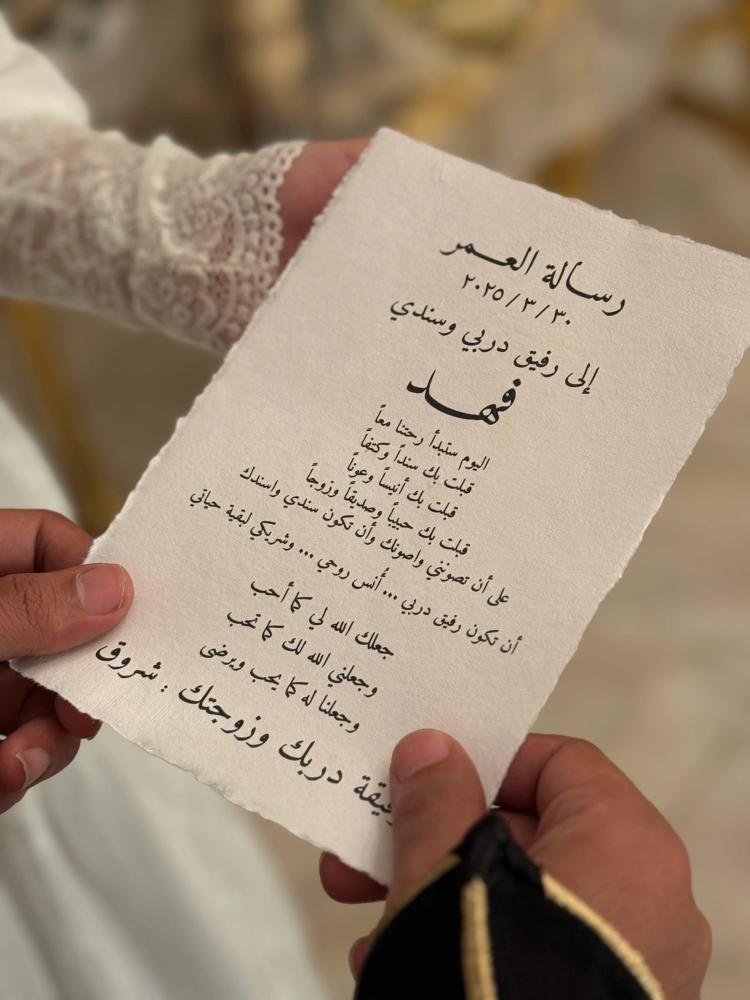 رسالة العمر
٢٠٢٥ / ٣ / ٣٠
إلى رفيق دربي وسندي
فهد
اليوم ستبدأ رحتنا معاً
قبلت بك سنداً وكتفاً
قبلت بك أنيساً وعوناً
قبلت بك حبيباً وصديقاً وزوجاً
على أن تصونني واصونك وأن تكون سندي واسندك
أن تكون رفيق دربي ... أُنس روحي ... وشريكي لبقية حياتي
جعلك الله لي كما أحب
وجعلني الله لك كما تحب
وجعلنا له كما يحب ويرضى
دربك وزوجتك : شروق